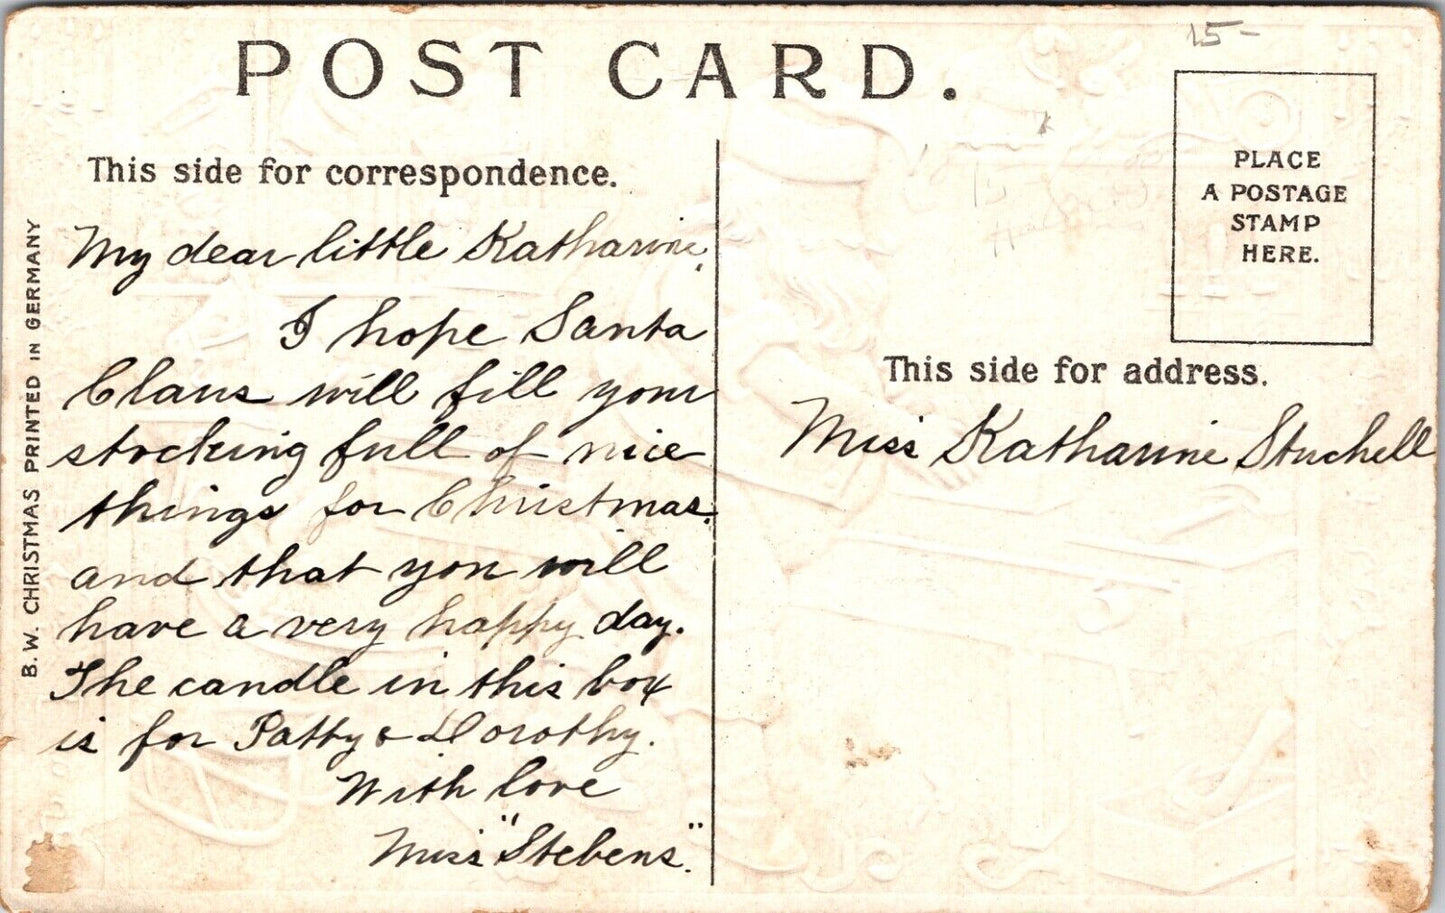 POST CARD.
15-
PLACE
A POSTAGE
STAMP
HERE.
This side for correspondence.
My dear little Katharine,
I hope Santa
Claus will fill your
stocking full of nice
things for Christmas.
and that you will
have a very happy day.
The candle in this box
is for Patty & Dorothy.
With love
Miss "Stebens".
This side for address.
Miss Katharine Stuchell
B. W. CHRISTMAS PRINTED IN GERMANY